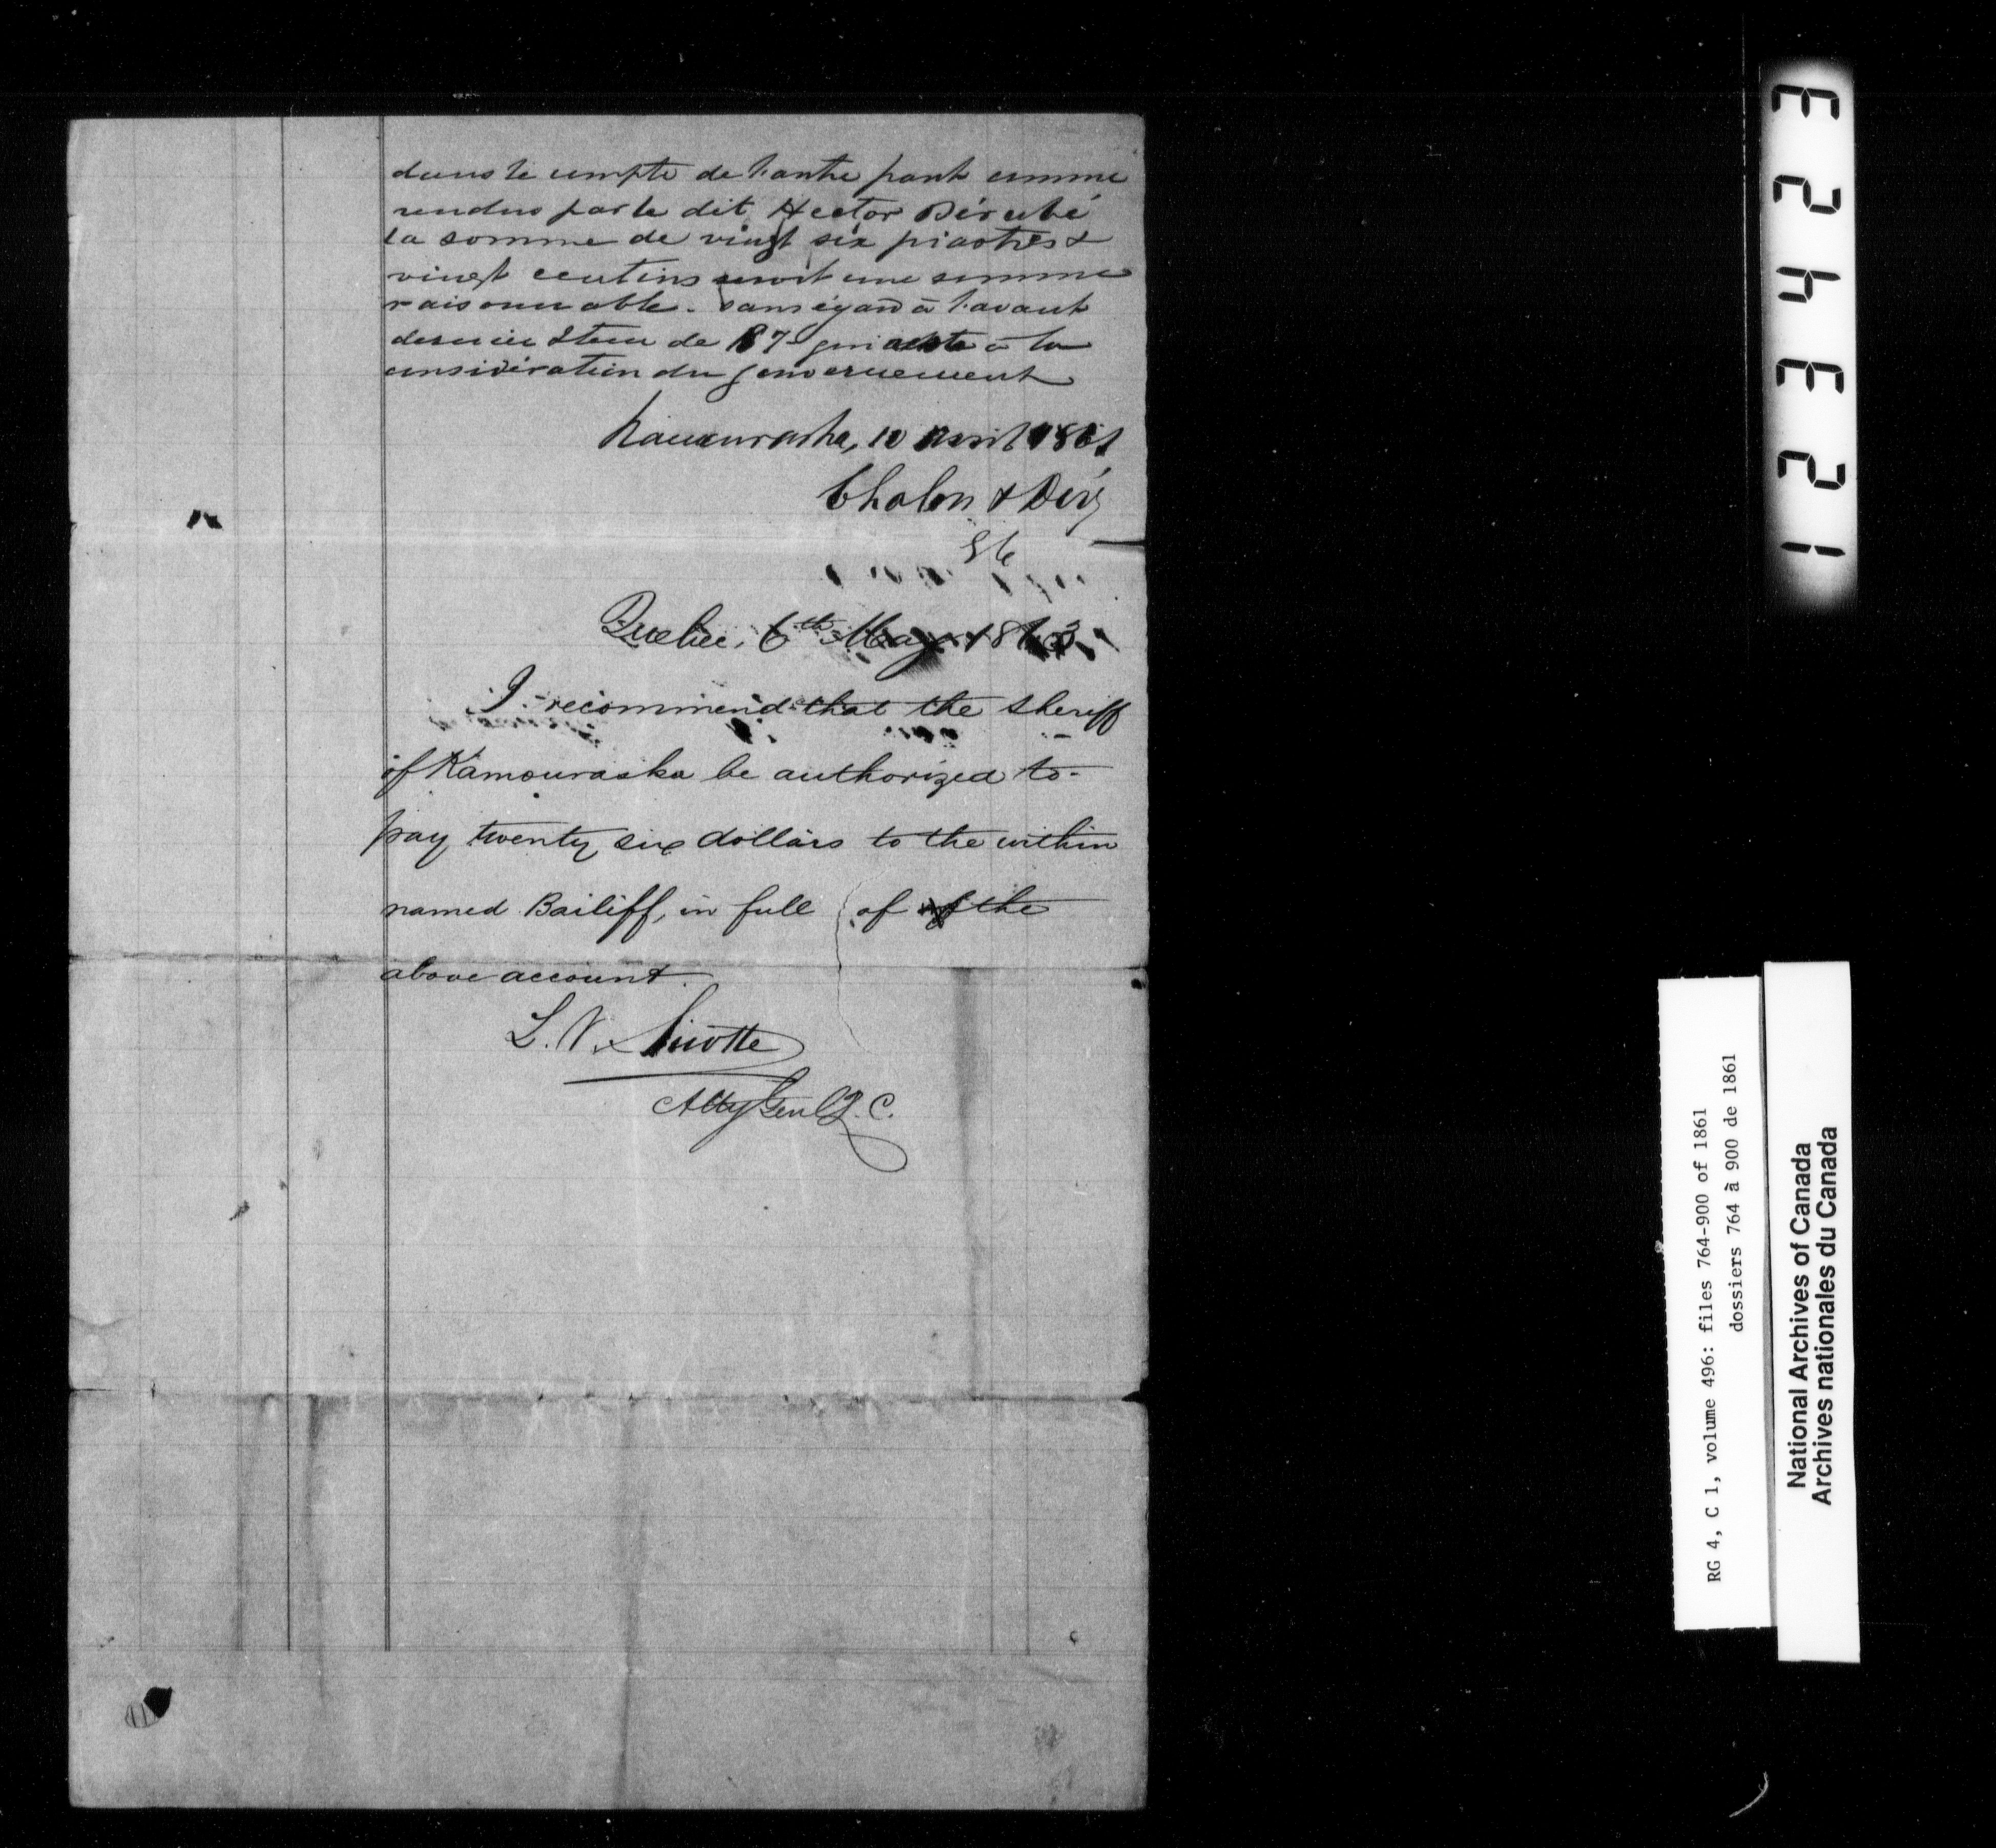 dans le compte de l'autre part comme
rendus par le dit Hector Bérubé
la somme de vingt six piastres &
vingt centins seroit une somme
raisonnable. sans égard à l'avant
dernier Item de 87 qui reste à la
considération du gouvernement
Kamouraska, 10 Avril 1861
Chalou &
Quebec, 6th May 1863
I recommend that the Sheriff
of Kamouraska be authorized to
pay twenty six dollars to the within
named Bailiff, in full of the
above account.
L. V. Sicotte
Atty Genl L. C.
324321
RG 4, C 1, volume 496: files 764-900 of 1861
dossiers 764 à 900 de 1861
National Archives of Canada
Archives nationales du Canada